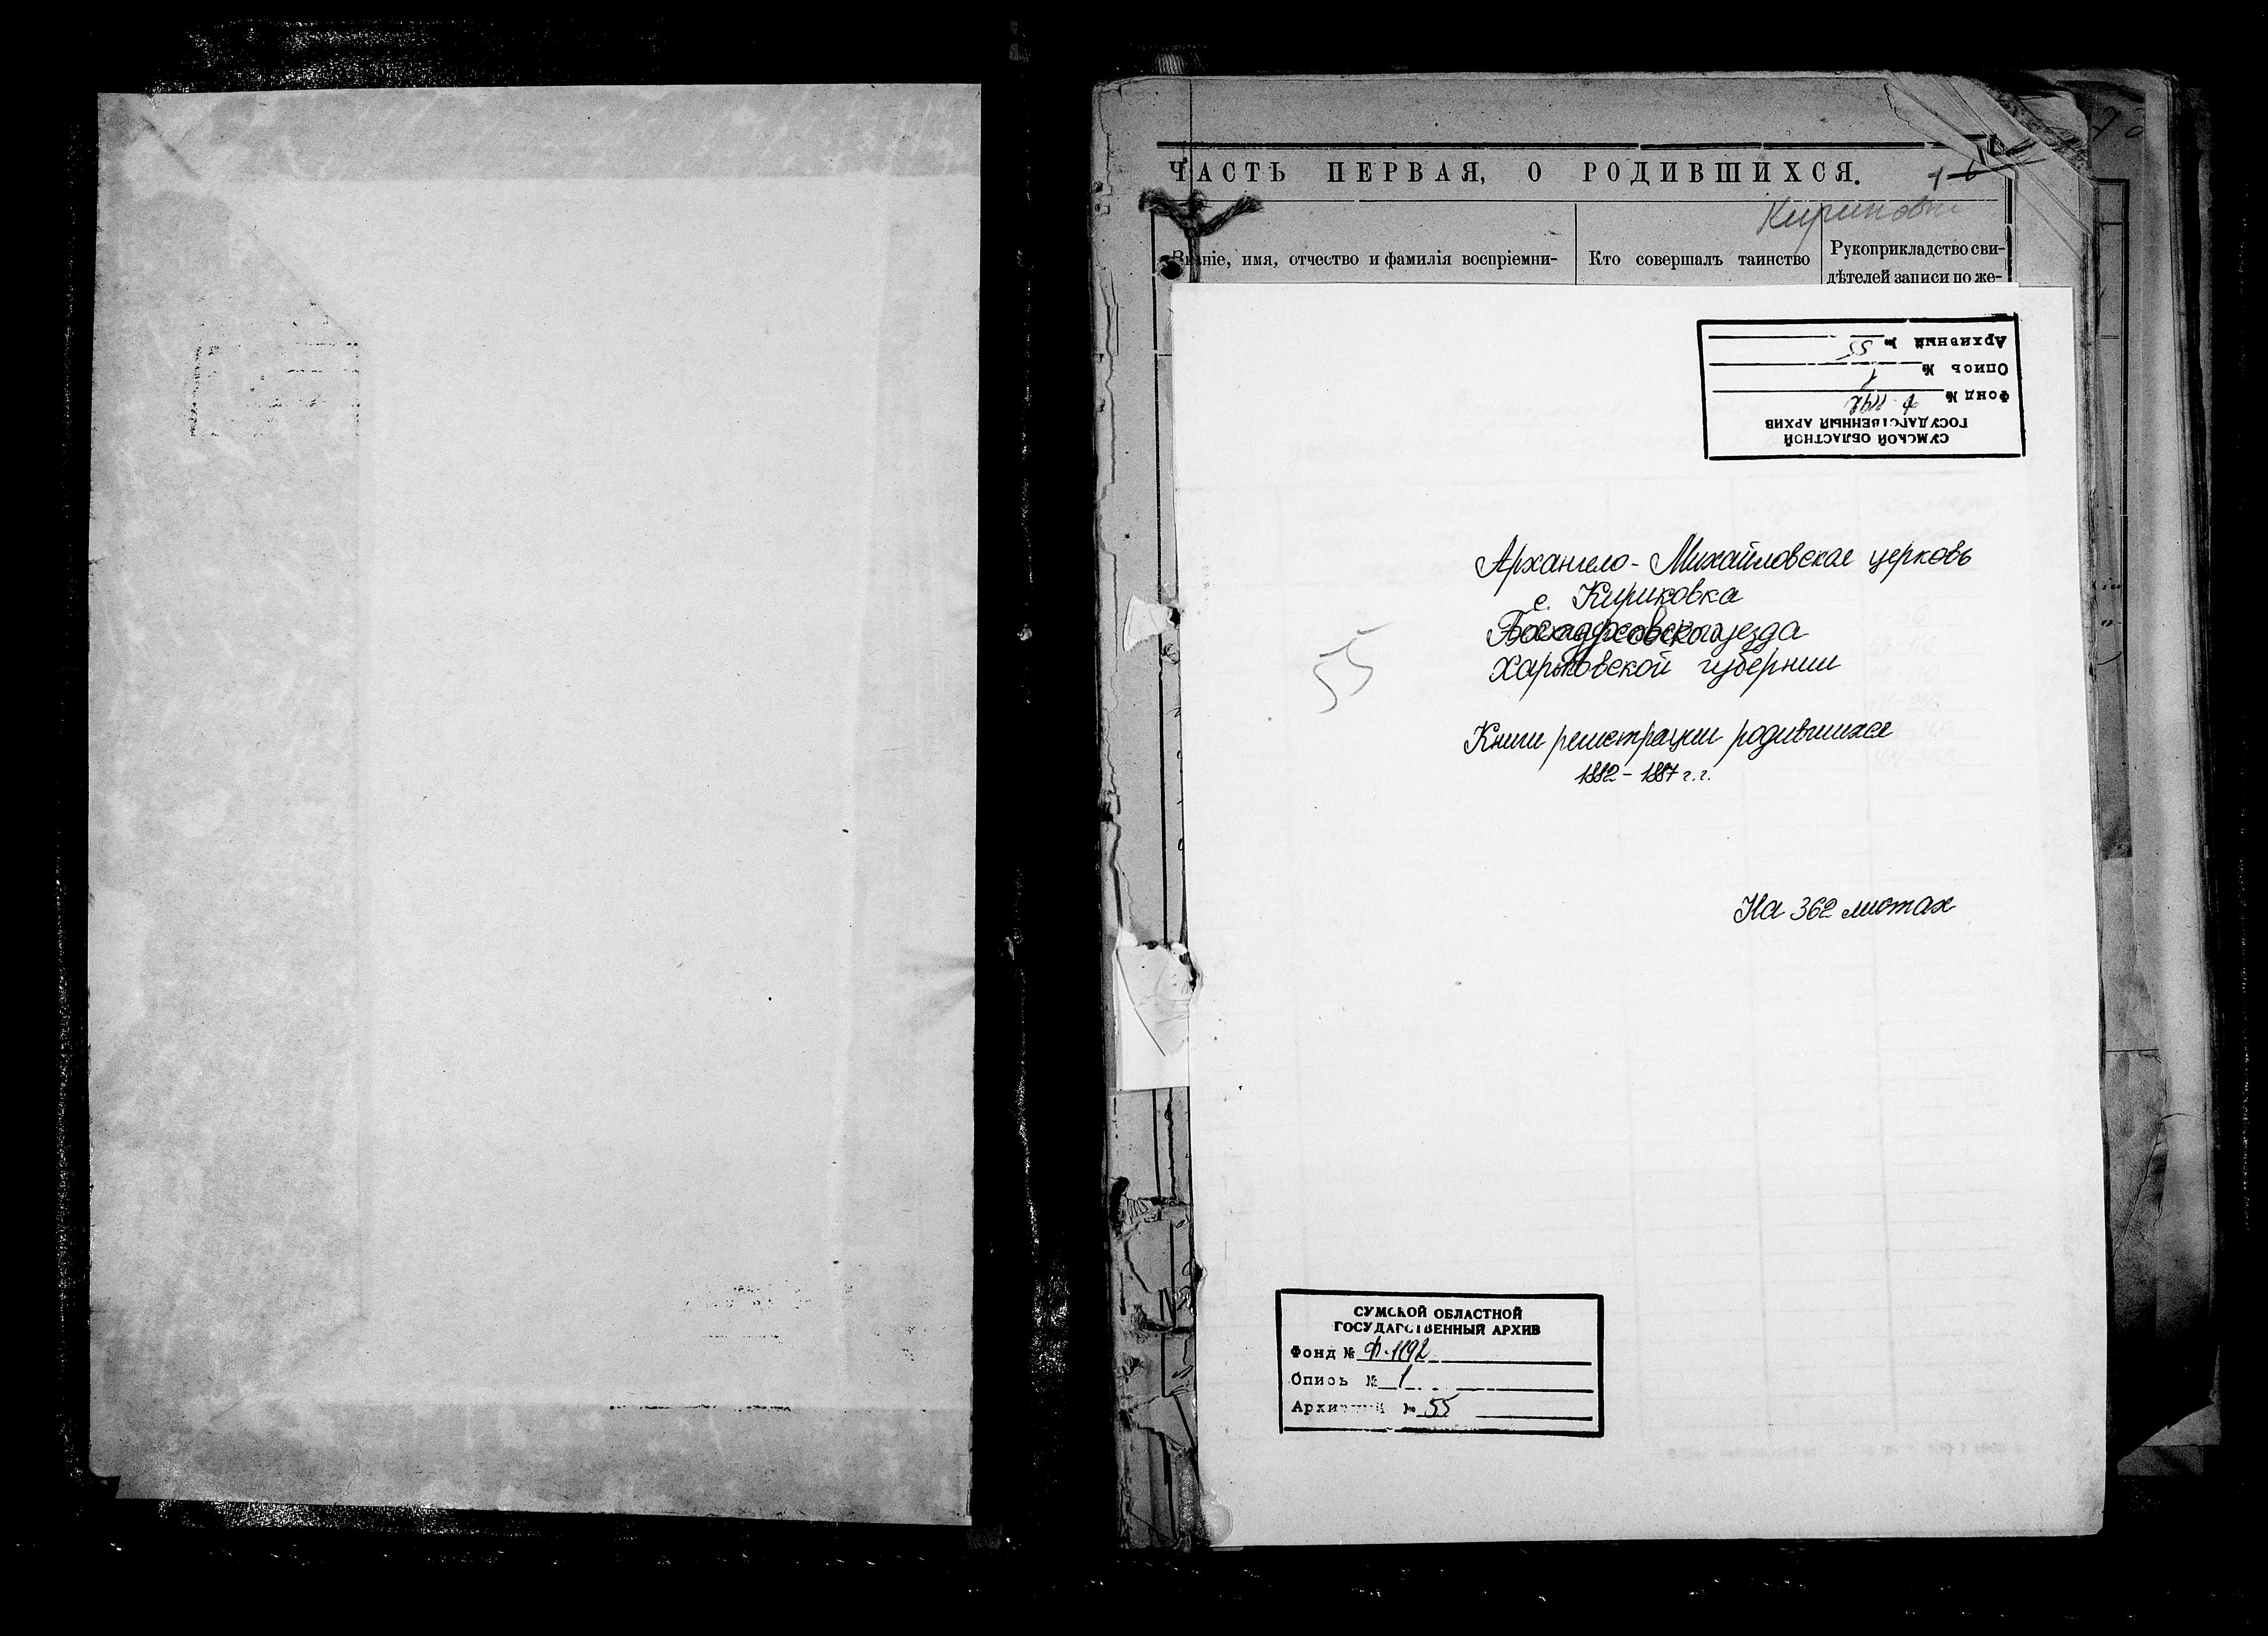 ЧАСТЬ ПЕРВАЯ, О РОДИВШИХСЯ.
Кириковка
Званіе, имя, отчество и фамилія воспріемни-
Кто совершалъ таинство
Рукоприкладство сви-
дѣтелей записи по же-
СУМСКОЙ ОБЛАСТНОЙ
ГОСУДАРСТВЕННЫЙ АРХИВ
Фонд № Ф.1192
Опись № 1
Архивный № 55
Архангело-Михайловская церковь
с. Кириковка
Богодуховского уезда
Харьковской губернии
55
Книги регистрации родившихся
1882-1887 г.г.
На 362 листах
СУМСКОЙ ОБЛАСТНОЙ
ГОСУДАРСТВЕННЫЙ АРХИВ
Фонд № Ф.1192
Опись № 1
Архивный № 55